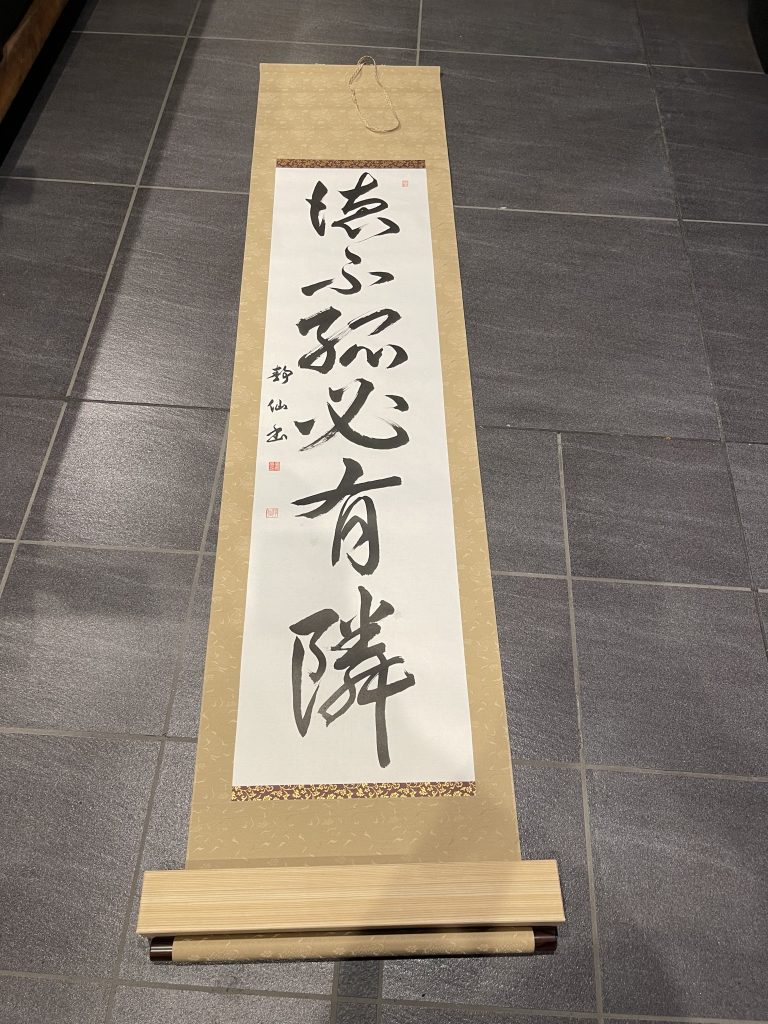 徳不孤必有隣
静仙書